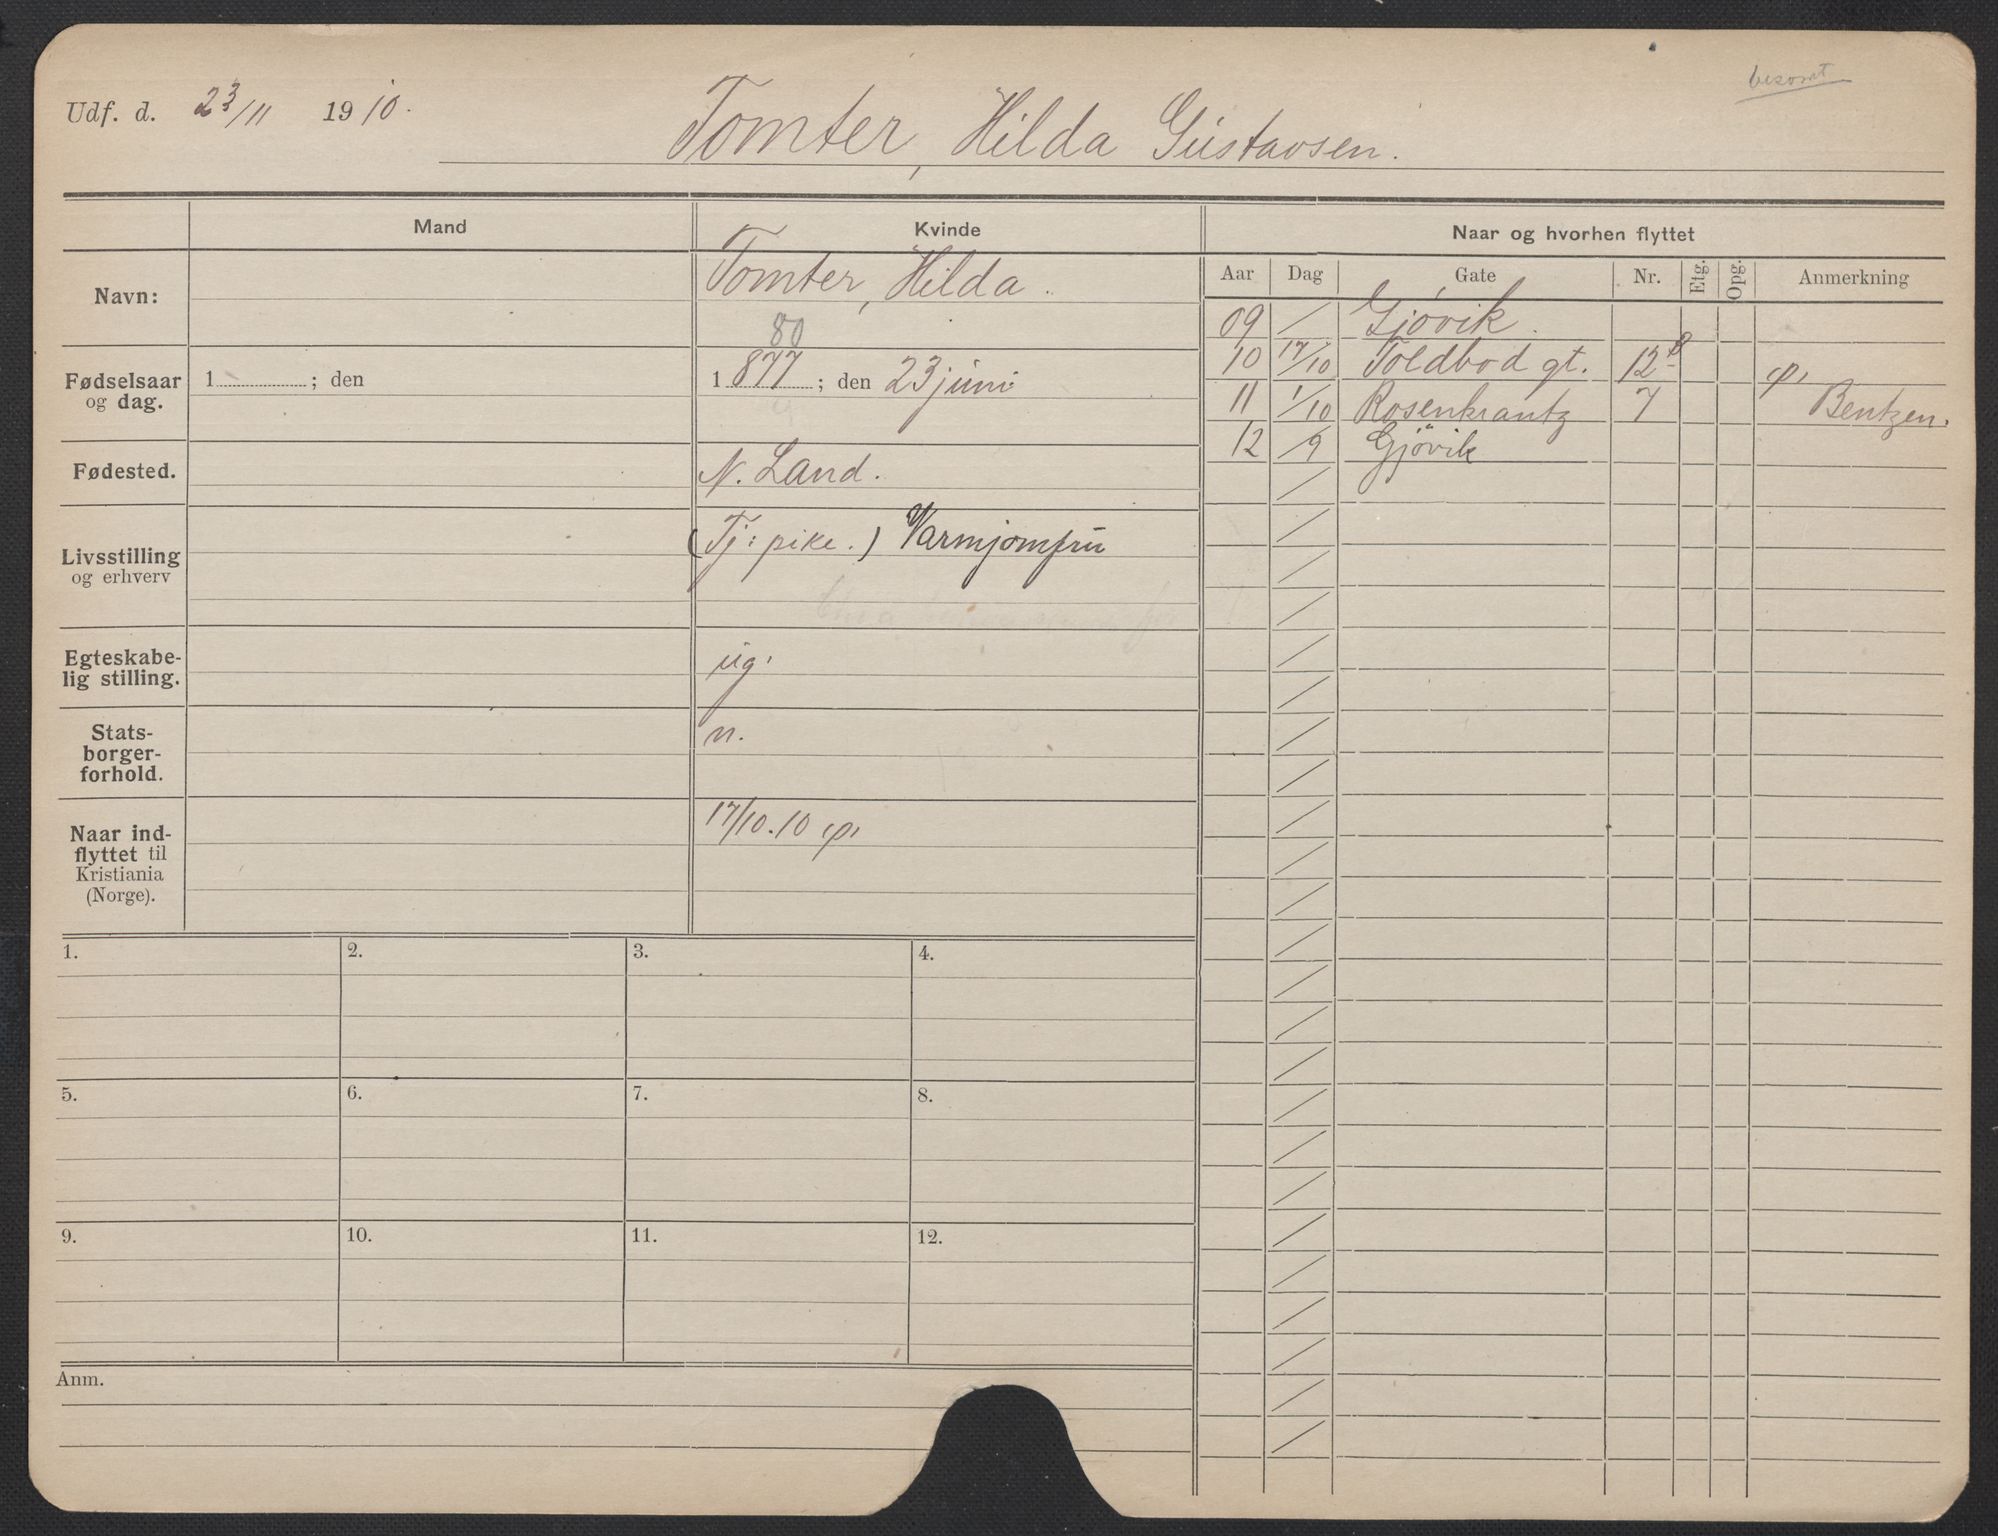 Udf. d. 23/11 1910. Tomter, Hilda Gustavsen.
Mand Kvinde Naar og hvorhen flyttet
Aar Dag Gate Nr. Etg. Opg. Anmerkning
Navn: Tomter, Hilda.
80
Fødselsaar og dag. 1 ; den 1877 ; den 23 juni
Fødested. N. Land.
Livsstilling og erhverv (Tj: pike.) Varmjomfru
Egteskabe-
lig stilling. ug.
Stats-
borger-
forhold. n.
Naar ind-
flyttet til
Kristiania
(Norge). 17/10.10
09 / Gjøvik.
10 17/10 Toldbod gt. 12B
11 1/10 Rosenkrantz 7 Bentzen.
12 /9 Gjøvik
1. 2. 3. 4.
5. 6. 7. 8.
9. 10. 11. 12.
Anm.